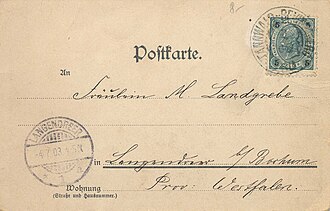 8-
Postkarte.
An
Fräulein M Landgrebe
LANGENDREER
in
Langendreer b/ Bochum
Wohnung
(Straße und Hausnummer.)
Prov: Westfalen.